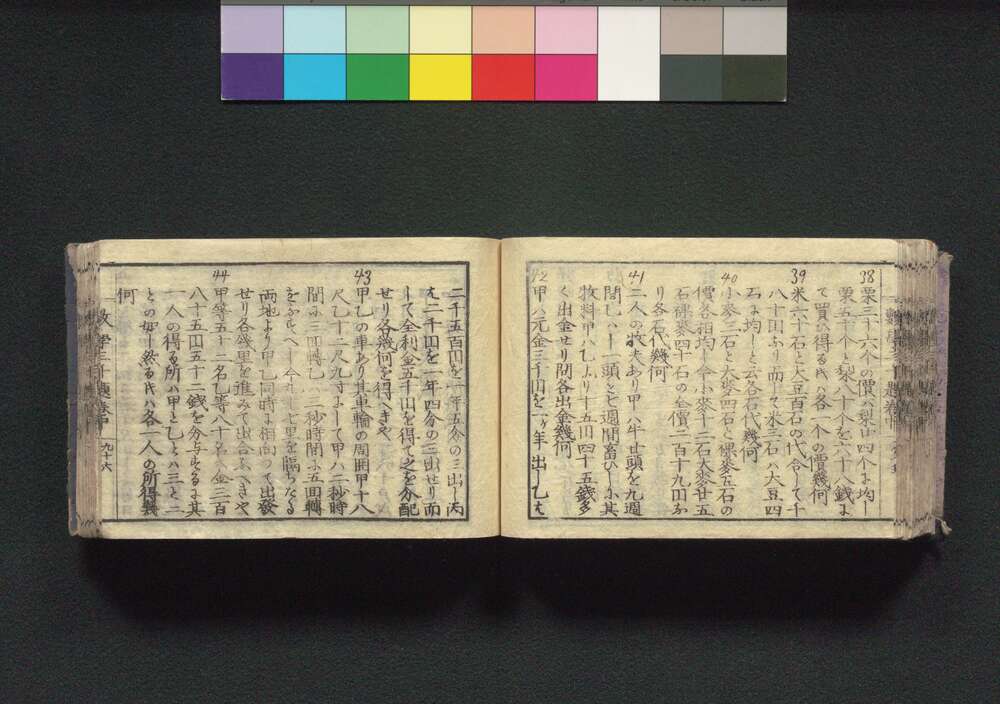 38 栗三十六个の價ハ梨廿四个に均し
栗五十个と梨八十个を六十八銭に
て買ひ得る氏ハ各一个の價幾何
39 米六十石と大豆百石の代合して千
八十円ふり而して米三石ハ大豆四
石に均しと云各石代幾何
40 小麥三石と大麥四石と稞麥五石の
價各相均し今小麥十二石大麥廿五
石稞麥四十石の全價二百十九円ふ
り各石代幾何
41 二人の牧夫あり甲ハ牛廿頭を九週
間乙ハ一頭を七週間畜ひしに其
牧料甲ハ乙より十五円四十五銭多
く出金せり問各出金幾何
42 甲ハ元金三千円を一ヶ年出し乙も
二千五百円を一年五分の三出し丙
も二千円を一年四分の三出せり而
して全利金五千円を得て之を分配
せり各幾何を得へきや
43 甲乙の車あり其車輪の周囲甲十八
尺乙十二尺九寸にして甲ハ二秒時
間に三回轉乙ハ三秒時間に五回轉
をふすへし今七里を隔ちたる
両地より甲乙同時に相向つて出發
せり各幾里を進みて出合ふへきや
44 甲等五十二名乙等八十名へ金三百
八十五円五十二銭を分与するに其
一人の得る所ハ甲と乙とハ三と二
との如し然る氏ハ各一人の所得幾
何
数学三千題巻中 九十六